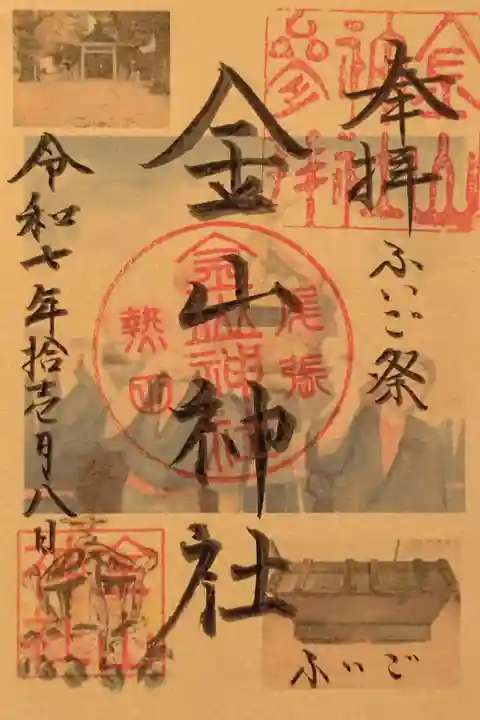 奉拝
ふいご祭
金山神社
尾張
金山神社
熱田
令和七年拾壱月八日
ふいご